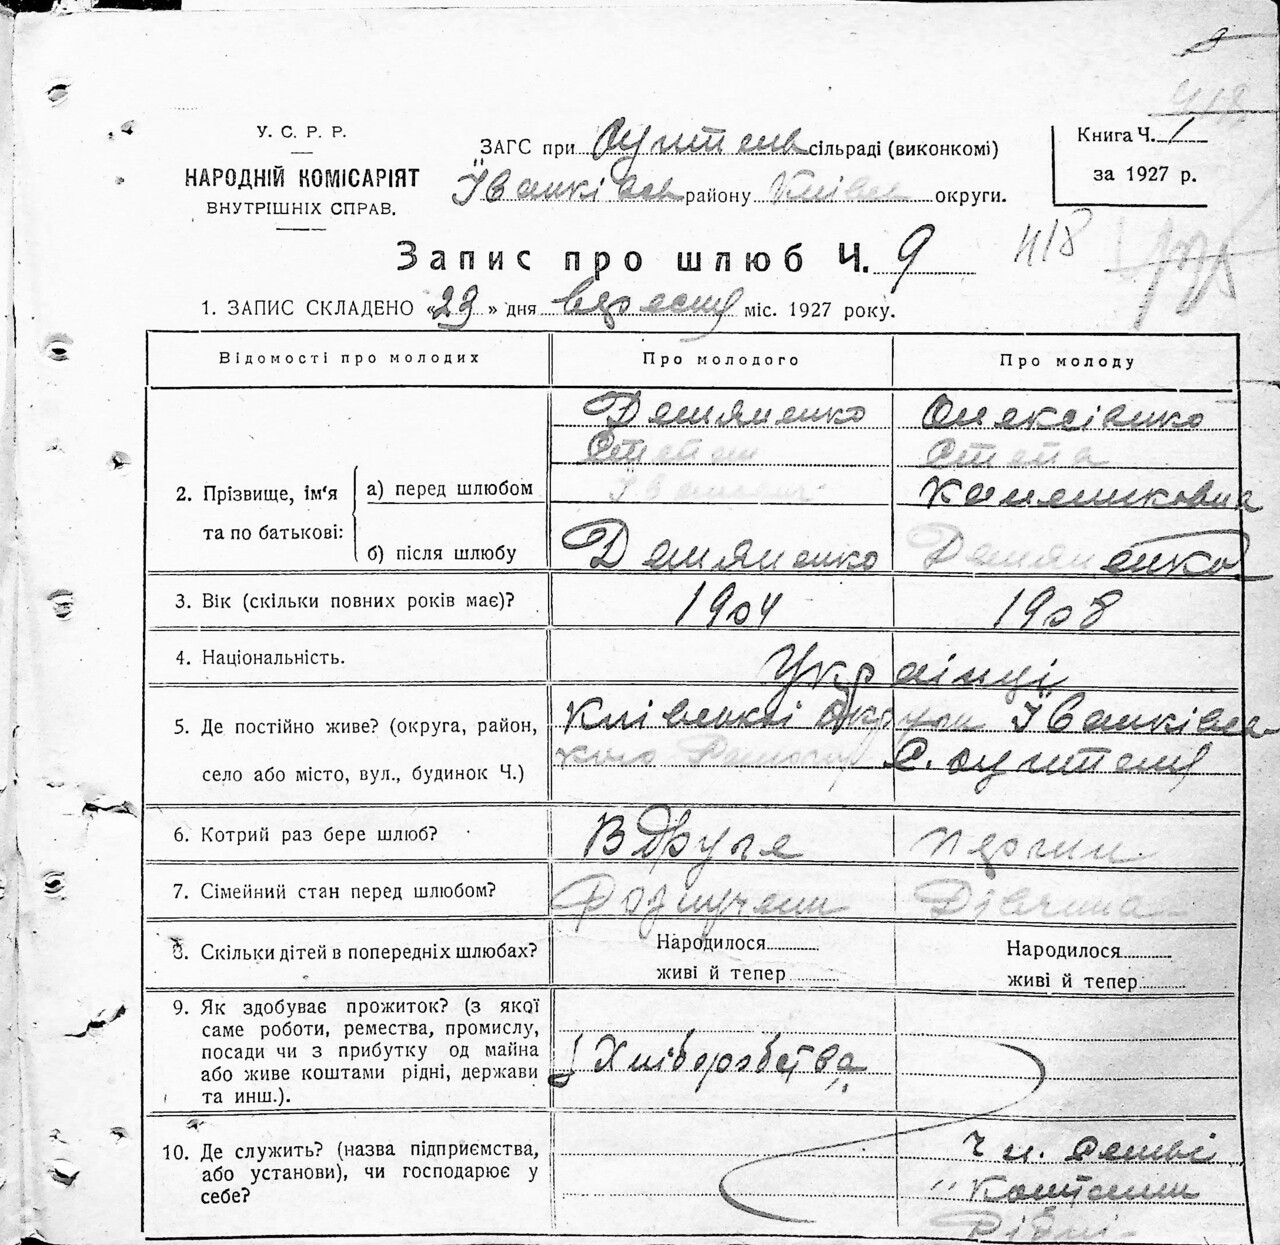 418
У. С. Р. Р.
НАРОДНІЙ КОМІСАРІЯТ
ВНУТРІШНІХ СПРАВ.
ЗАГС при сільраді (виконкомі)
Іванків району Київс округи.
Книга Ч. 1
за 1927 р.
Запис про шлюб Ч. 9
418
1. ЗАПИС СКЛАДЕНО «23» дня вересня міс. 1927 року.
Відомості про молодих Про молодого Про молоду
Демяненко Олексієнко
Степан Степа
2. Прізвище, ім'я та по батькові:
а) перед шлюбом Іванович
б) після шлюбу Демяненко Демяненко
3. Вік (скільки повних років має)? 1904 1908
4. Національність. Українці
5. Де постійно живе? (округа, район, Київської округи Іванківсь
село або місто, вул., будинок Ч.) кого Району С.
6. Котрий раз бере шлюб? Вдруге Перший
7. Сімейний стан перед шлюбом? Розлучений Дівчина
8. Скільки дітей в попередніх шлюбах? Народилося Народилося
живі й тепер живі й тепер
9. Як здобуває прожиток? (з якої
саме роботи, ремества, промислу,
посади чи з прибутку од майна Хліборобства
або живе коштами рідні, держави
та инш.).
10. Де служить? (назва підприємства, Чл. семьі
або установи), чи господарює у Коштами
себе? Рідні